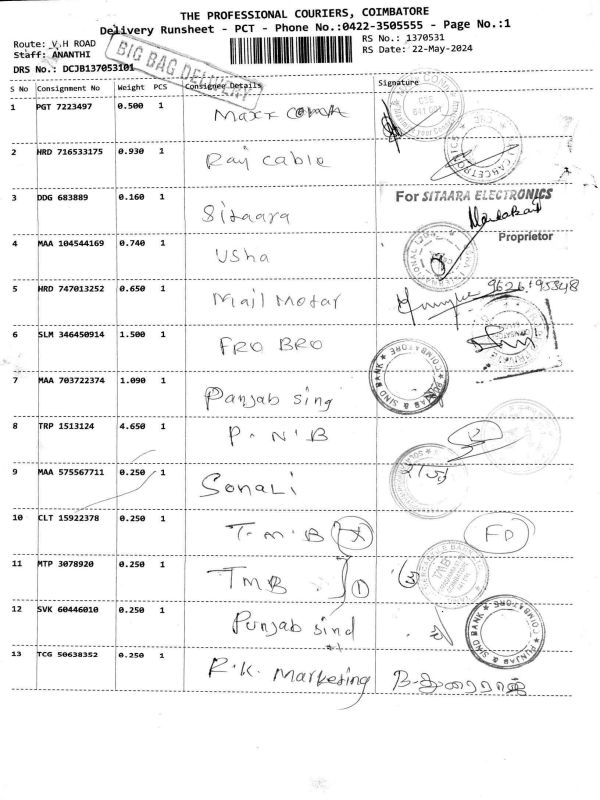 THE PROFESSIONAL COURIERS, COIMBATORE
Delivery Runsheet - PCT - Phone No.:0422-3505555 - Page No.:1
Route: V.H ROAD
RS No.: 1370531
Staff: ANANTHI
RS Date: 22-May-2024
BIG BAG DELIVERY
DRS No.: DCJB137053101
S No Consignment No Weight PCS Consignee Details Signature
1 PGT 7223497 0.500 1 Maxx
2 HRD 716533175 0.930 1 Raj Cable
3 DDG 683889 0.160 1 Sitaara
For SITAARA ELECTRONICS
Proprietor
4 MAA 104544169 0.740 1 Usha
5 HRD 747013252 0.650 1 Mail Motar
6 SLM 346450914 1.500 1 FRO BRO
PUNJAB & SIND BANK * COIMBATORE *
7 MAA 703722374 1.090 1 Panjab sing
8 TRP 1513124 4.650 1 P. N. B
9 MAA 575567711 0.250 1 Sonali
10 CLT 15922378 0.250 1 T. M. B FD
11 MTP 3078920 0.250 1 TMB 1
TMB
12 SVK 60446010 0.250 1 Punjab sind
PUNJAB & SIND BANK * COIMBATORE *
13 TCG 50638352 0.250 1 R.K. Marketing